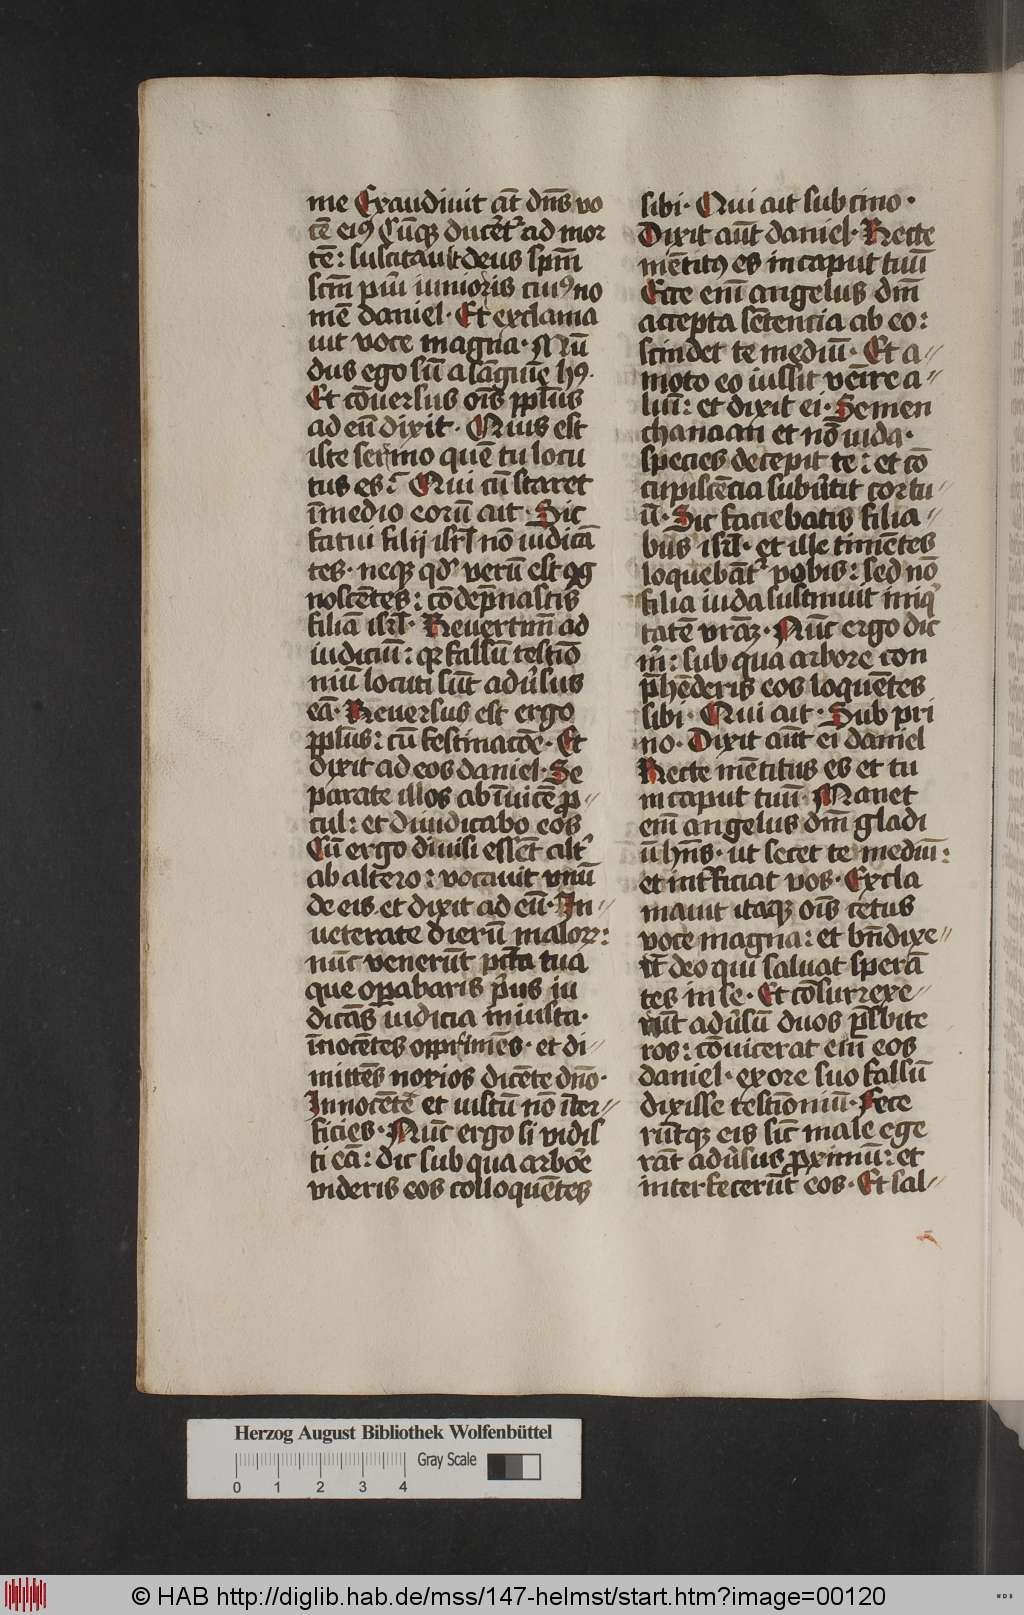 me Exaudiuit aūt dn̄s vo
cē eiꝰ Cūqꝫ ducer̄et᷑ ad mor
tē: suscitauit deus spm̄
scm̄ pu̇i iunioris cuiꝰ no
mē daniel· Et exclama
uit voce magna· Mū
dus ego sū a sāguīe hꝰ·
Et cōuersus oīs ppl̄us
ad eū dixit· Quis est
iste sermo quē tu locu
tus es: Qui cū staret
īmedio eorū ait· Sic
fatui filij isrl̄ nō iudicā
tes· neqꝫ qd' verū est ꝯg
noscētes: cōdēpnastis
filiā isrl̄· Reuertim̄ ad
iudiciū: qꝛ falsū testiō
niū locuti sūt adūsus
eā· Reuersus est ergo
ppl̄us: cū festinacōe· Et
dixit ad eos daniel· Se
parate illos ab īuicē p̲-
cul: et diiudicabo eos
Cū ergo diuisi essēt alt᷑
ab altero: vocauit vnū
de eis et dixit ad eū· In-
ueterate dierū malorꝝ:
nūc venerūt pctā tua
que oꝑabaris pͥus iu
dicās iudicia iniusta·
īnocētes opprimēs· et di-
mittēs noxios dicēte dn̄o·
Innocētē et iustū nō īter-
ficies· Nūc ergo si vidis
ti eā: dic sub qua arboē
videris eos colloquētes
sibi· Qui ait sub cino·
Dixit aūt daniel· Recte
mētitꝰ es in caput tuū
Ecce enī angelus dm̄
accepta sētencia ab eo:
scindet te mediū· Et a-
moto eo iussit venīre a-
liū: et dixit ei· Semen
chanaan et nō iuda·
species decepit te: et cō
cupiscēcia subūtit cor tu-
ū· Sic faciebatis filia-
bus isrl̄· et ille timētes
loquebāt᷑ vobis: sed nō
filia iuda sustinuit iniqͥ
tatē vrāꝫ· Nūc ergo dic
m̄: sub qua arbore con
p̄hēderis eos loquētes
sibi· Qui ait· Sub pri
no· Dixit aūt ei daniel
Recte mētitus es et tu
in caput tuū· Manet
enī angelus dm̄ gladi
ū hn̄s· ut secet te mediū:
et int̄ficiat vos· Excla
mauit itaqꝫ oīs cetus
voce magna: et bn̄dixe-
rūt deo qui saluat sperā
tes in se· Et cōsurrexe-
rūt adūsū duos p̄sbite
ros: cōuicerat enī eos
daniel· ex ore suo falsū
dixisse testīoniū· Fece
rūtqꝫ eis sic̄ male ege
rāt adūsus ꝓximū: et
interfecerūt eos· Et sal-
Herzog August Bibliothek Wolfenbüttel
Gray Scale
0 1 2 3 4
© HAB http://diglib.hab.de/mss/147-helmst/start.htm?image=00120